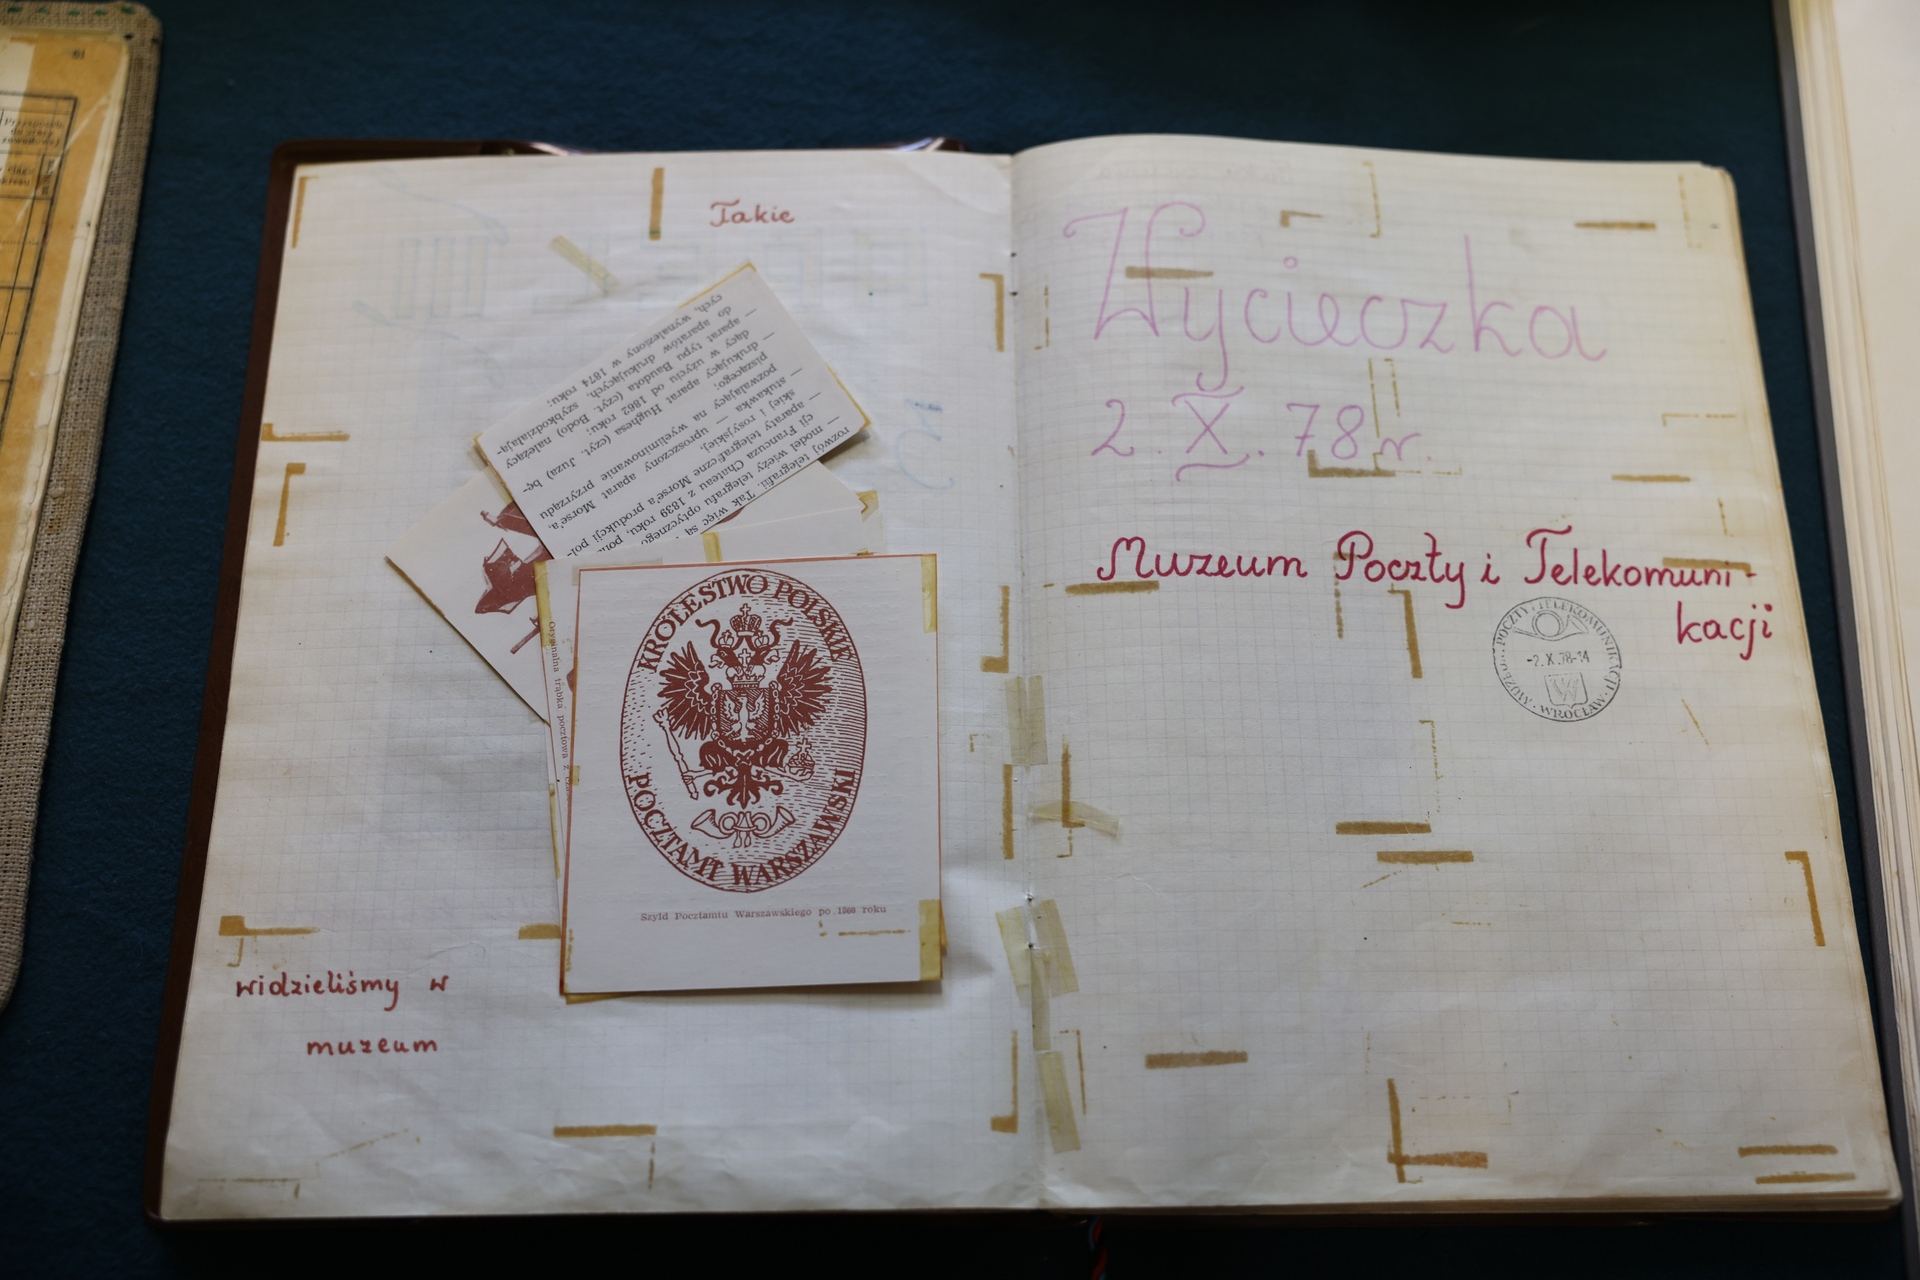 Takie
cych, wynaleziony w 1874 roku;
do aparatów drukujących, szybkodziałają-
— aparat typu Baudota (czyt. Bodo) należący
dący w użyciu od 1862 roku;
— drukujący aparat Hughesa (czyt. Juza) bę-
piszącego;
pozwalający na wyeliminowanie przyrządu
— stukawka — uproszczony aparat Morse'a,
skiej i rosyjskiej,
— aparaty telegraficzne Morse'a produkcji pol-
cji Francuza Chateau z 1839 roku,
— model wieży telegrafu optycznego
rozwój telegrafii. Tak więc są
Oryginalna trąbka pocztowa z
KRÓLESTWO POLSKIE
POCZTAMT WARSZAWSKI
Szyld Pocztamtu Warszawskiego po 1860 roku
widzieliśmy w
muzeum
Wycieczka
2. X. 78 r.
Muzeum Poczty i Telekomuni-
kacji
MUZEUM POCZTY I TELEKOMUNIKACJI
-2.X.78-14
W
WROCŁAW